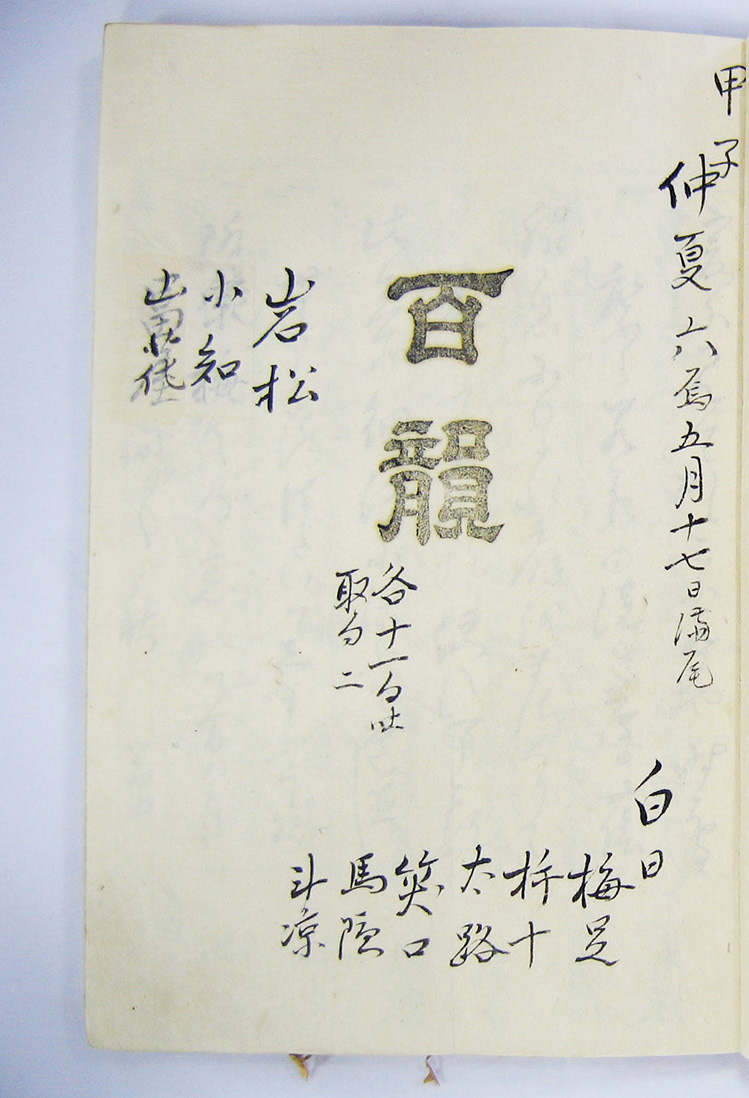 甲子
仲夏六焉五月十七日満尾
百韻
各十一句吐
取句二
白日
梅足
柝十
太路
笑口
馬隠
斗凉
岩松
小知